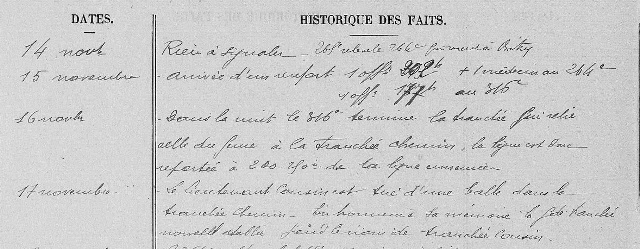 DATES. HISTORIQUE DES FAITS.
14 novbre Rien à signaler 265e relève le 264e
15 novembre - arrivée d'un renfort 1 off. + 1 médecin au 264e
1 off. 177h au 316e
16 novbre - Dans la nuit le 316e termine la tranchée qui relie
celle du génie à la tranchée chemin. la ligne est donc
reportée à 200 de la ligne ennemie
17 novembre - Le Lieutenant Cousin est tué d'une balle dans la
tranchée chemin - En honneur à sa mémoire la tranchée
nouvelle prend le nom de tranchée Cousin.